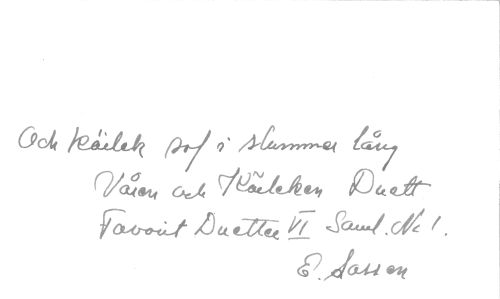 Och kärlek sof i slummer lång
Våren och Kärleken Duett
Favorit Duetter VI Saml. No 1.
E. Sassen